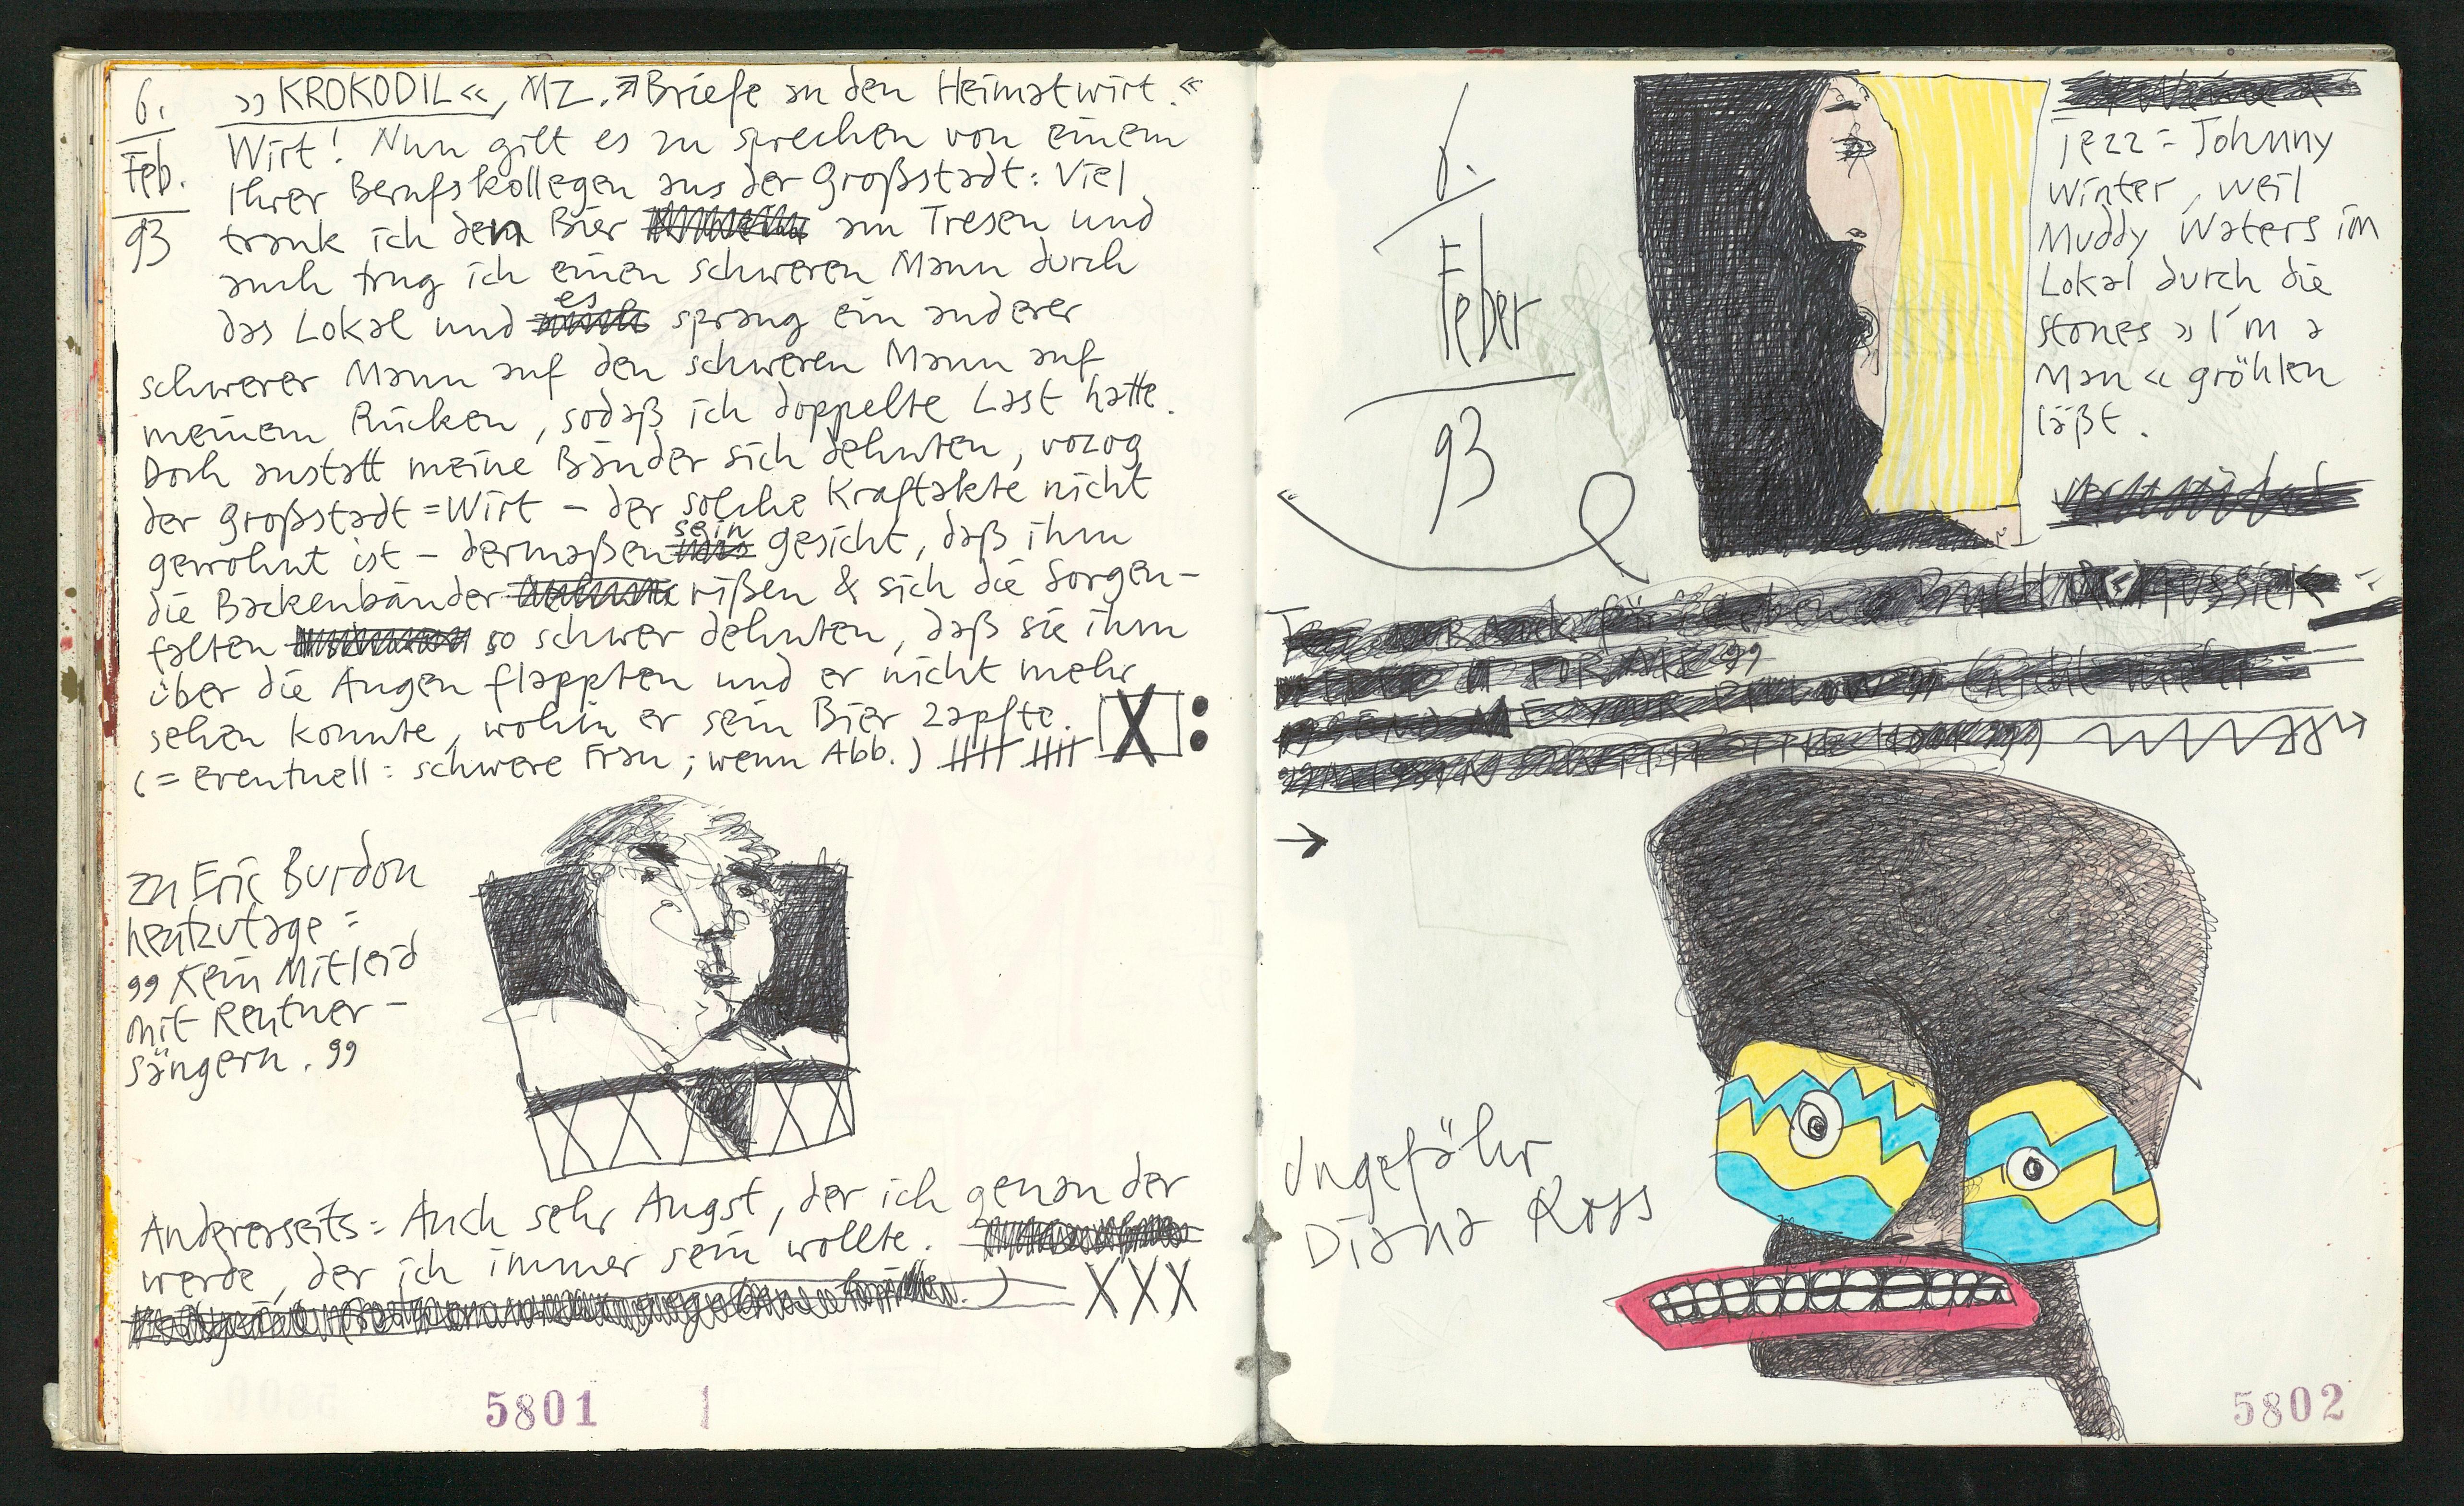 6.
Feb.
93
»KROKODIL«, MZ. »Briefe an den Heimatwirt.«
Wirt! Nun gilt es zu sprechen von einem
Ihrer Berufskollegen aus der Großstadt: Viel
trank ich den Bier am Tresen und
auch trug ich einen schweren Mann durch
das Lokal und es sprang ein anderer
schwerer Mann auf den schweren Mann auf
meinem Rücken, sodaß ich doppelte Last hatte.
Doch anstatt meine Bänder sich dehnten, vozog
der Großstadt=Wirt – der solche Kraftakte nicht
gewohnt ist – dermaßen sein Gesicht, daß ihm
die Backenbänder rißen & sich die Sorgen-
falten so schwer dehnten, daß sie ihm
über die Augen flappten und er nicht mehr
sehen konnte, wohin er sein Bier zapfte. X :
(= eventuell: schwere Frau; wenn Abb.)
zu Eric Burdon
heutzutage =
„Kein Mitleid
mit Rentner-
sängern.“
Andererseits = Auch sehr Angst, der ich genau der
werde, der ich immer sein wollte.
XXX
5801
6.
Feber
93
Jezz = Johnny
Winter, weil
Muddy Waters im
Lokal durch die
Stones »I'm a
Man« gröhlen
läßt.
→
Ungefähr
Diana Ross
5802